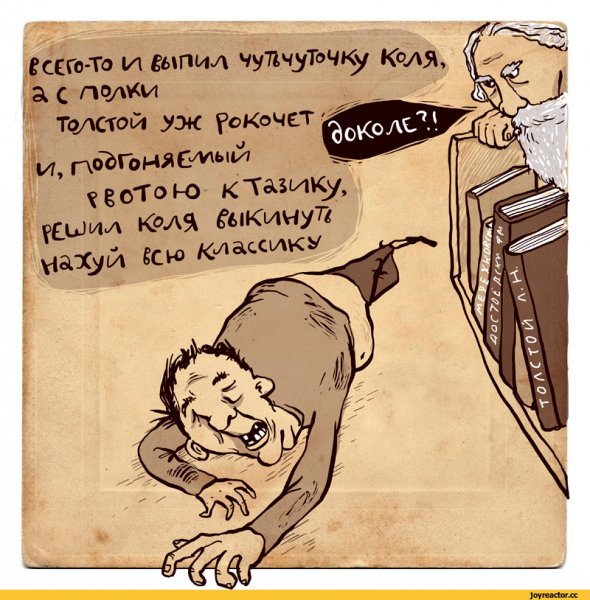 всего-то и выпил чутьчуточку Коля,
а с полки
Толстой уж рокочет
доколе?!
и, подгоняемый
рвотою к тазику,
решил Коля выкинуть
нахуй всю классику
МЕРЕЖКОВСКИЙ
ДОСТОЕВСКИ ФМ
ТОЛСТОЙ Л.Н.
joyreactor.cc